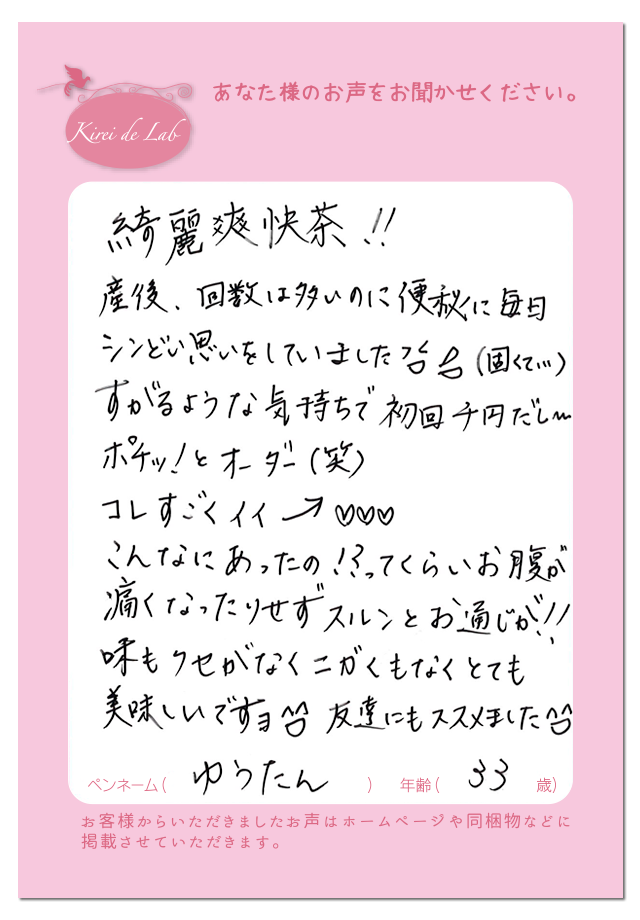 あなた様のお声をお聞かせください。
Kirei de Lab
綺麗爽快茶!!
産後、回数は多いのに便秘に毎日
シンどい思いをしていました (固くて…)
すがるような気持ちで初回千円だし〜
ポチッ!とオーダー(笑)
コレすごくイイ→♡♡♡
こんなにあったの!?ってくらいお腹が
痛くなったりせずスルンとお通じが!!
味もクセがなくニガくもなくとても
美味しいですヨ 友達にもススメました
ペンネーム( ゆうたん ) 年齢( 33 歳)
お客様からいただきましたお声はホームページや同梱物などに
掲載させていただきます。